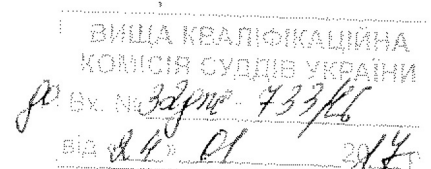 ВИЩА КВАЛІФІКАЦІЙНА
КОМІСІЯ СУДДІВ УКРАЇНИ
до Вх. № - 733/16
від «24» 01 2017